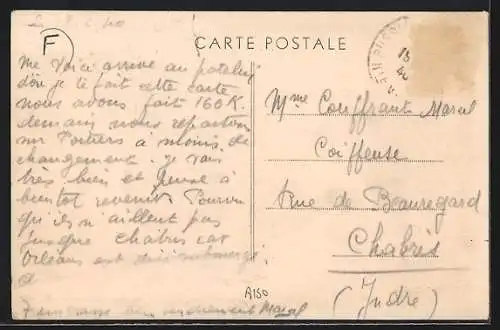 F
CARTE POSTALE
me voici arrivé au patelin
d'où je te fait cette carte
nous avons fait 160 K.
demain nous repartons
sur Poitiers à moins de
changement. je vais
très bien et pense à
bientot revenir Pourvu
qu'ils n'aillent pas
jusque chabris car
Orléans est
Marcel
A150
Mme Couffrant Marcel
Coiffeuse
Rue de Beauregard
Chabris
(Indre)